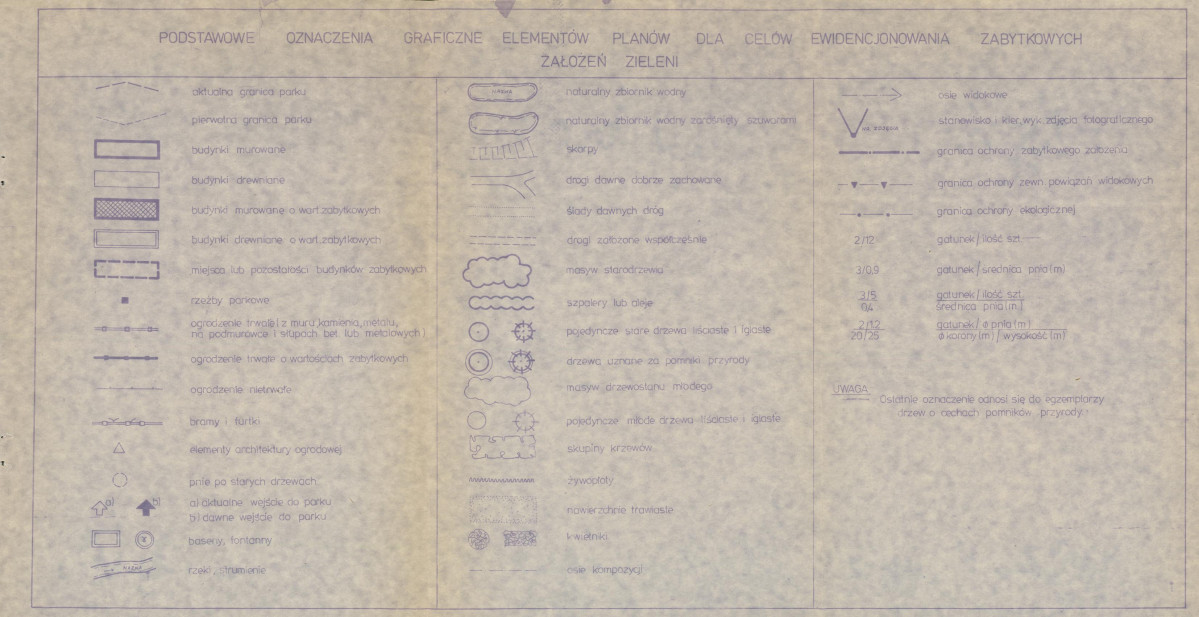 PODSTAWOWE OZNACZENIA GRAFICZNE ELEMENTÓW PLANÓW DLA CELÓW EWIDENCJONOWANIA ZABYTKOWYCH
ZAŁOŻEŃ ZIELENI
aktualna granica parku
pierwotna granica parku
budynki murowane
budynki drewniane
budynki murowane o wart. zabytkowych
budynki drewniane o wart. zabytkowych
miejsca lub pozostałości budynków zabytkowych
rzeźby parkowe
ogrodzenie trwałe (z muru, kamienia, metalu,
na podmurówce i słupach bet. lub metalowych)
ogrodzenie trwałe o wartościach zabytkowych
ogrodzenie nietrwałe
bramy i furtki
elementy architektury ogrodowej
pnie po starych drzewach
a) b) a) aktualne wejście do parku
b) dawne wejście do parku
baseny, fontanny
rzeki, strumienie
naturalny zbiornik wodny
naturalny zbiornik wodny zarośnięty szuwarami
skarpy
drogi dawne dobrze zachowane
ślady dawnych dróg
drogi założone współcześnie
masyw starodrzewia
szpalery lub aleje
pojedyncze stare drzewa liściaste i iglaste
drzewa uznane za pomniki przyrody
masyw drzewostanu młodego
pojedyncze młode drzewa liściaste i iglaste
skupiny krzewów
żywopłoty
nawierzchnie trawiaste
kwietniki
osie kompozycji
osie widokowe
stanowisko i kier. wyk. zdjęcia fotograficznego
granica ochrony zabytkowego założenia
granica ochrony zewn. powiązań widokowych
granica ochrony ekologicznej
2/12 gatunek / ilość szt.
3/0,9 gatunek / średnica pnia (m)
3/5 gatunek / ilość szt.
0,4 średnica pnia (m)
2/1.2 gatunek / ø pnia (m)
20/25 ø korony (m) / wysokość (m)
UWAGA
Ostatnie oznaczenie odnosi się do egzemplarzy
drzew o cechach pomników przyrody.